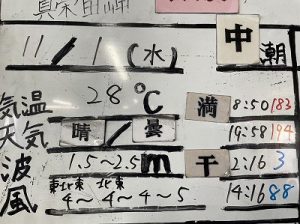 真栄田岬
11/1(水) 中潮
気温 28℃ 満 8:50 183
天気 晴/曇 19:58 194
波 1.5~2.5m 干 2:16 3
風 東北東 北東 14:16 88
4~4~4~5